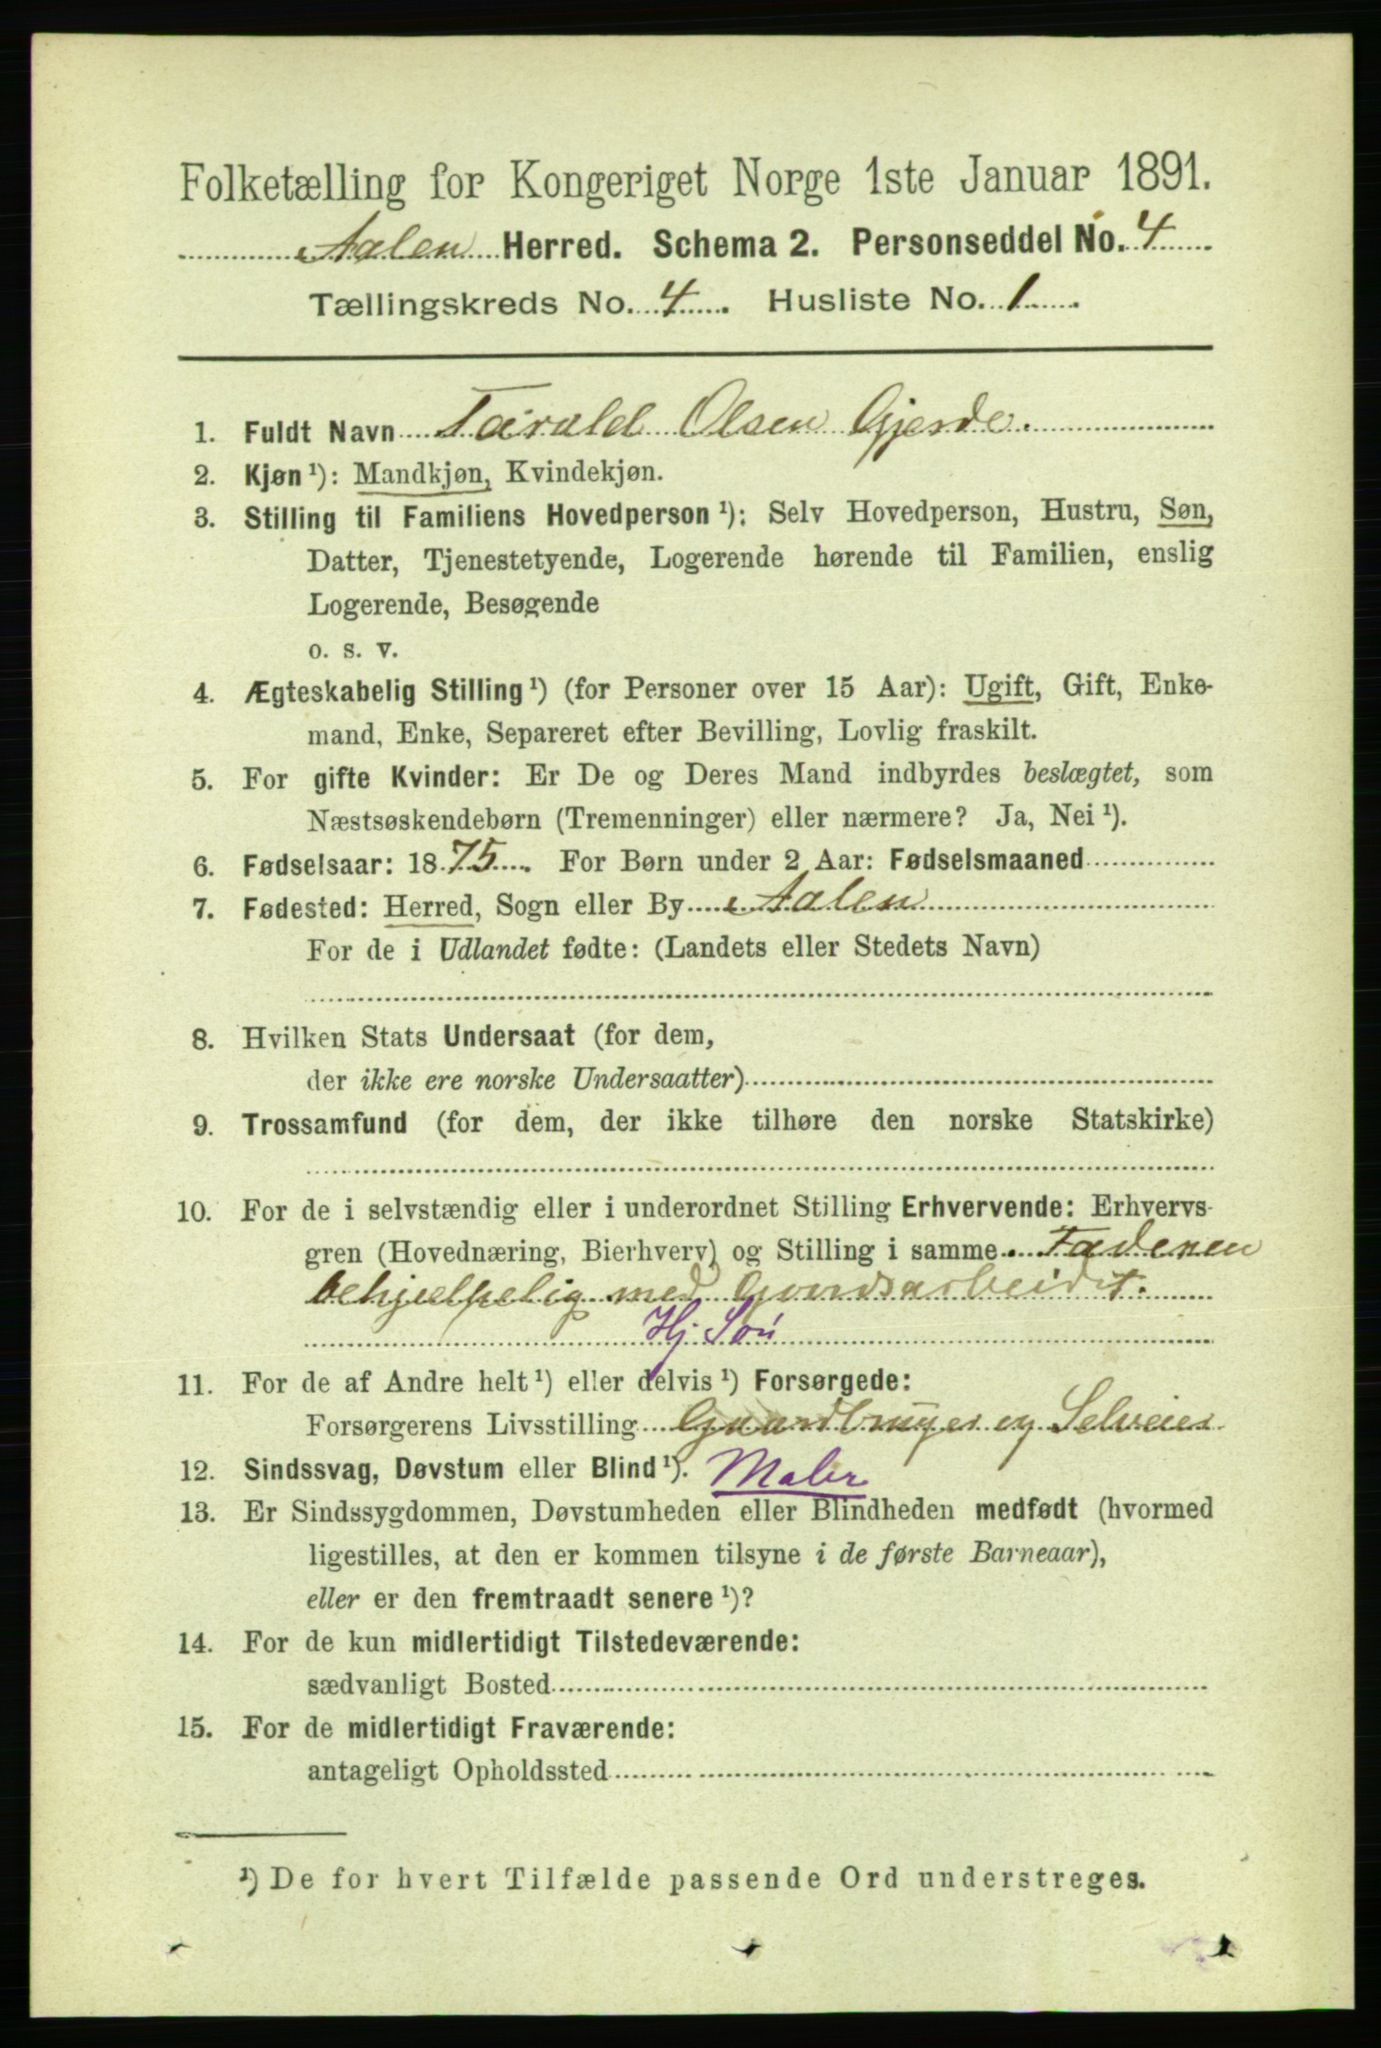 Folketælling for Kongeriget Norge 1ste Januar 1891.
Aalen Herred. Schema 2. Personseddel No. 4
Tællingskreds No. 4. Husliste No. 1.
1. Fuldt Navn Tarald Olsen Gjerde.
2. Kjøn ¹): Mandkjøn, Kvindekjøn.
3. Stilling til Familiens Hovedperson ¹): Selv Hovedperson, Hustru, Søn,
Datter, Tjenestetyende, Logerende hørende til Familien, enslig
Logerende, Besøgende
o. s. v.
4. Ægteskabelig Stilling ¹) (for Personer over 15 Aar): Ugift, Gift, Enke-
mand, Enke, Separeret efter Bevilling, Lovlig fraskilt.
5. For gifte Kvinder: Er De og Deres Mand indbyrdes beslægtet, som
Næstsøskendebørn (Tremenninger) eller nærmere? Ja, Nei ¹).
6. Fødselsaar: 1875. For Børn under 2 Aar: Fødselsmaaned
7. Fødested: Herred, Sogn eller By Aalen
For de i Udlandet fødte: (Landets eller Stedets Navn)
8. Hvilken Stats Undersaat (for dem,
der ikke ere norske Undersaatter)
9. Trossamfund (for dem, der ikke tilhøre den norske Statskirke)
10. For de i selvstændig eller i underordnet Stilling Erhvervende: Erhvervs-
gren (Hovednæring, Bierhverv) og Stilling i samme Faderen
behjelpelig med Gaardsarbeidet.
Hj Søn
11. For de af Andre helt ¹) eller delvis ¹) Forsørgede:
Forsørgerens Livsstilling Gaardbruger og Selveier
12. Sindssvag, Døvstum eller Blind ¹). Maler
13. Er Sindssygdommen, Døvstumheden eller Blindheden medfødt (hvormed
ligestilles, at den er kommen tilsyne i de første Barneaar),
eller er den fremtraadt senere ¹)?
14. For de kun midlertidigt Tilstedeværende:
sædvanligt Bosted
15. For de midlertidigt Fraværende:
antageligt Opholdssted
¹) De for hvert Tilfælde passende Ord understreges.